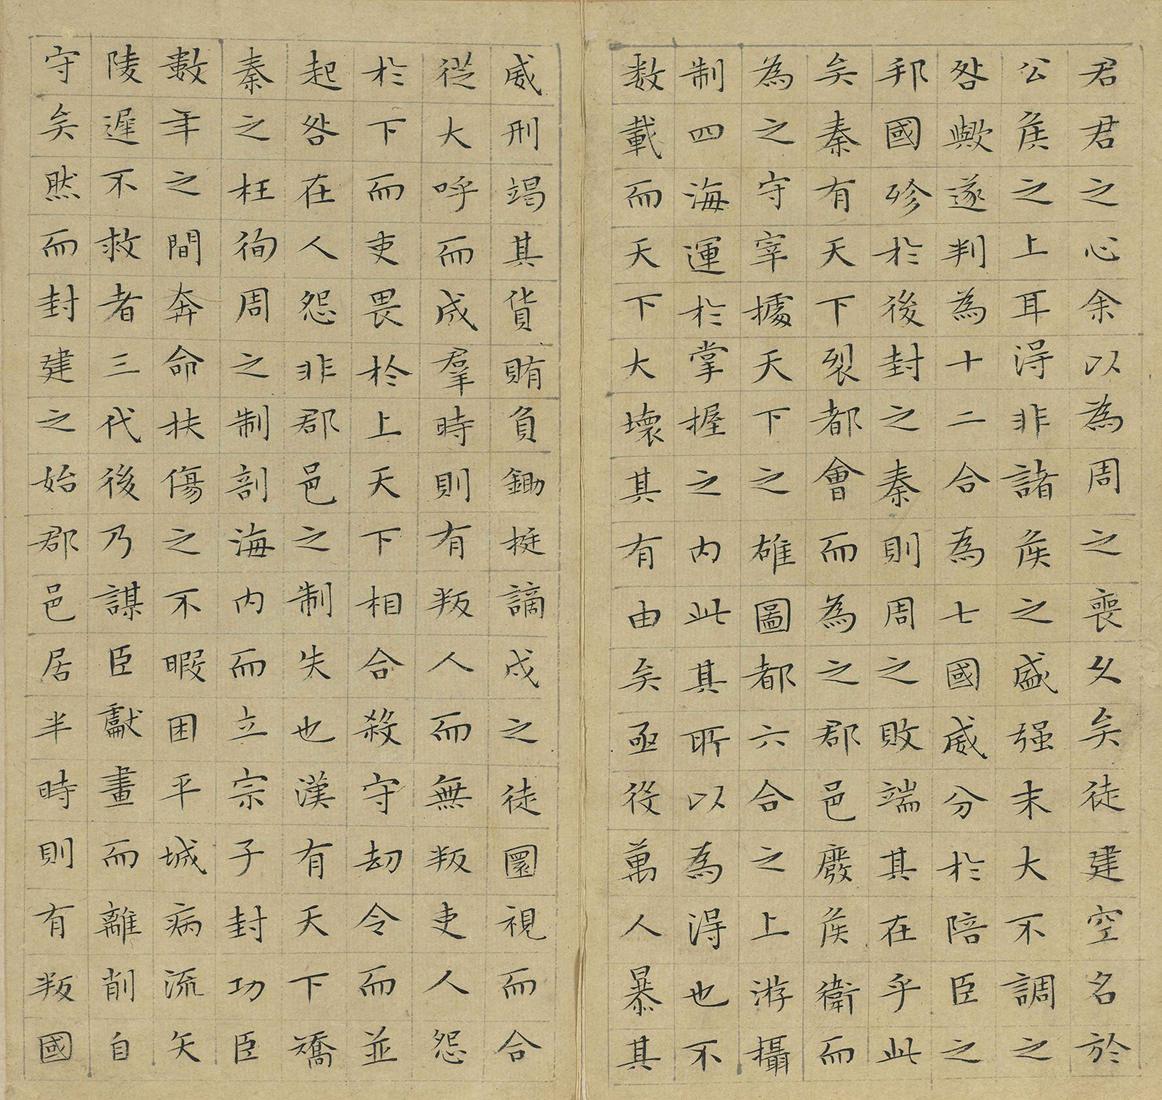 君君之心余以為周之喪久矣徒建空名於
公矦之上耳得非諸矦之盛强末大不調之
咎歟遂判為十二合為七國威分於陪臣之
邦國殄於後封之秦則周之敗端其在乎此
矣秦有天下裂都會而為之郡邑廢矦衛而
為之守宰據天下之雄圖都六合之上游攝
制四海運於掌握之內此其所以為得也不
数載而天下大壞其有由矣亟役萬人暴其
威刑竭其貨賄負鋤梃謫戍之徒圜視而合
從大呼而成羣時則有叛人而無叛吏人怨
於下而吏畏於上天下相合殺守劫令而並
起咎在人怨非郡邑之制失也漢有天下矯
秦之枉徇周之制剖海內而立宗子封功臣
數年之間奔命扶傷之不暇困平城病流矢
陵遲不救者三代後乃謀臣獻畫而離削自
守矣然而封建之始郡邑居半時則有叛國